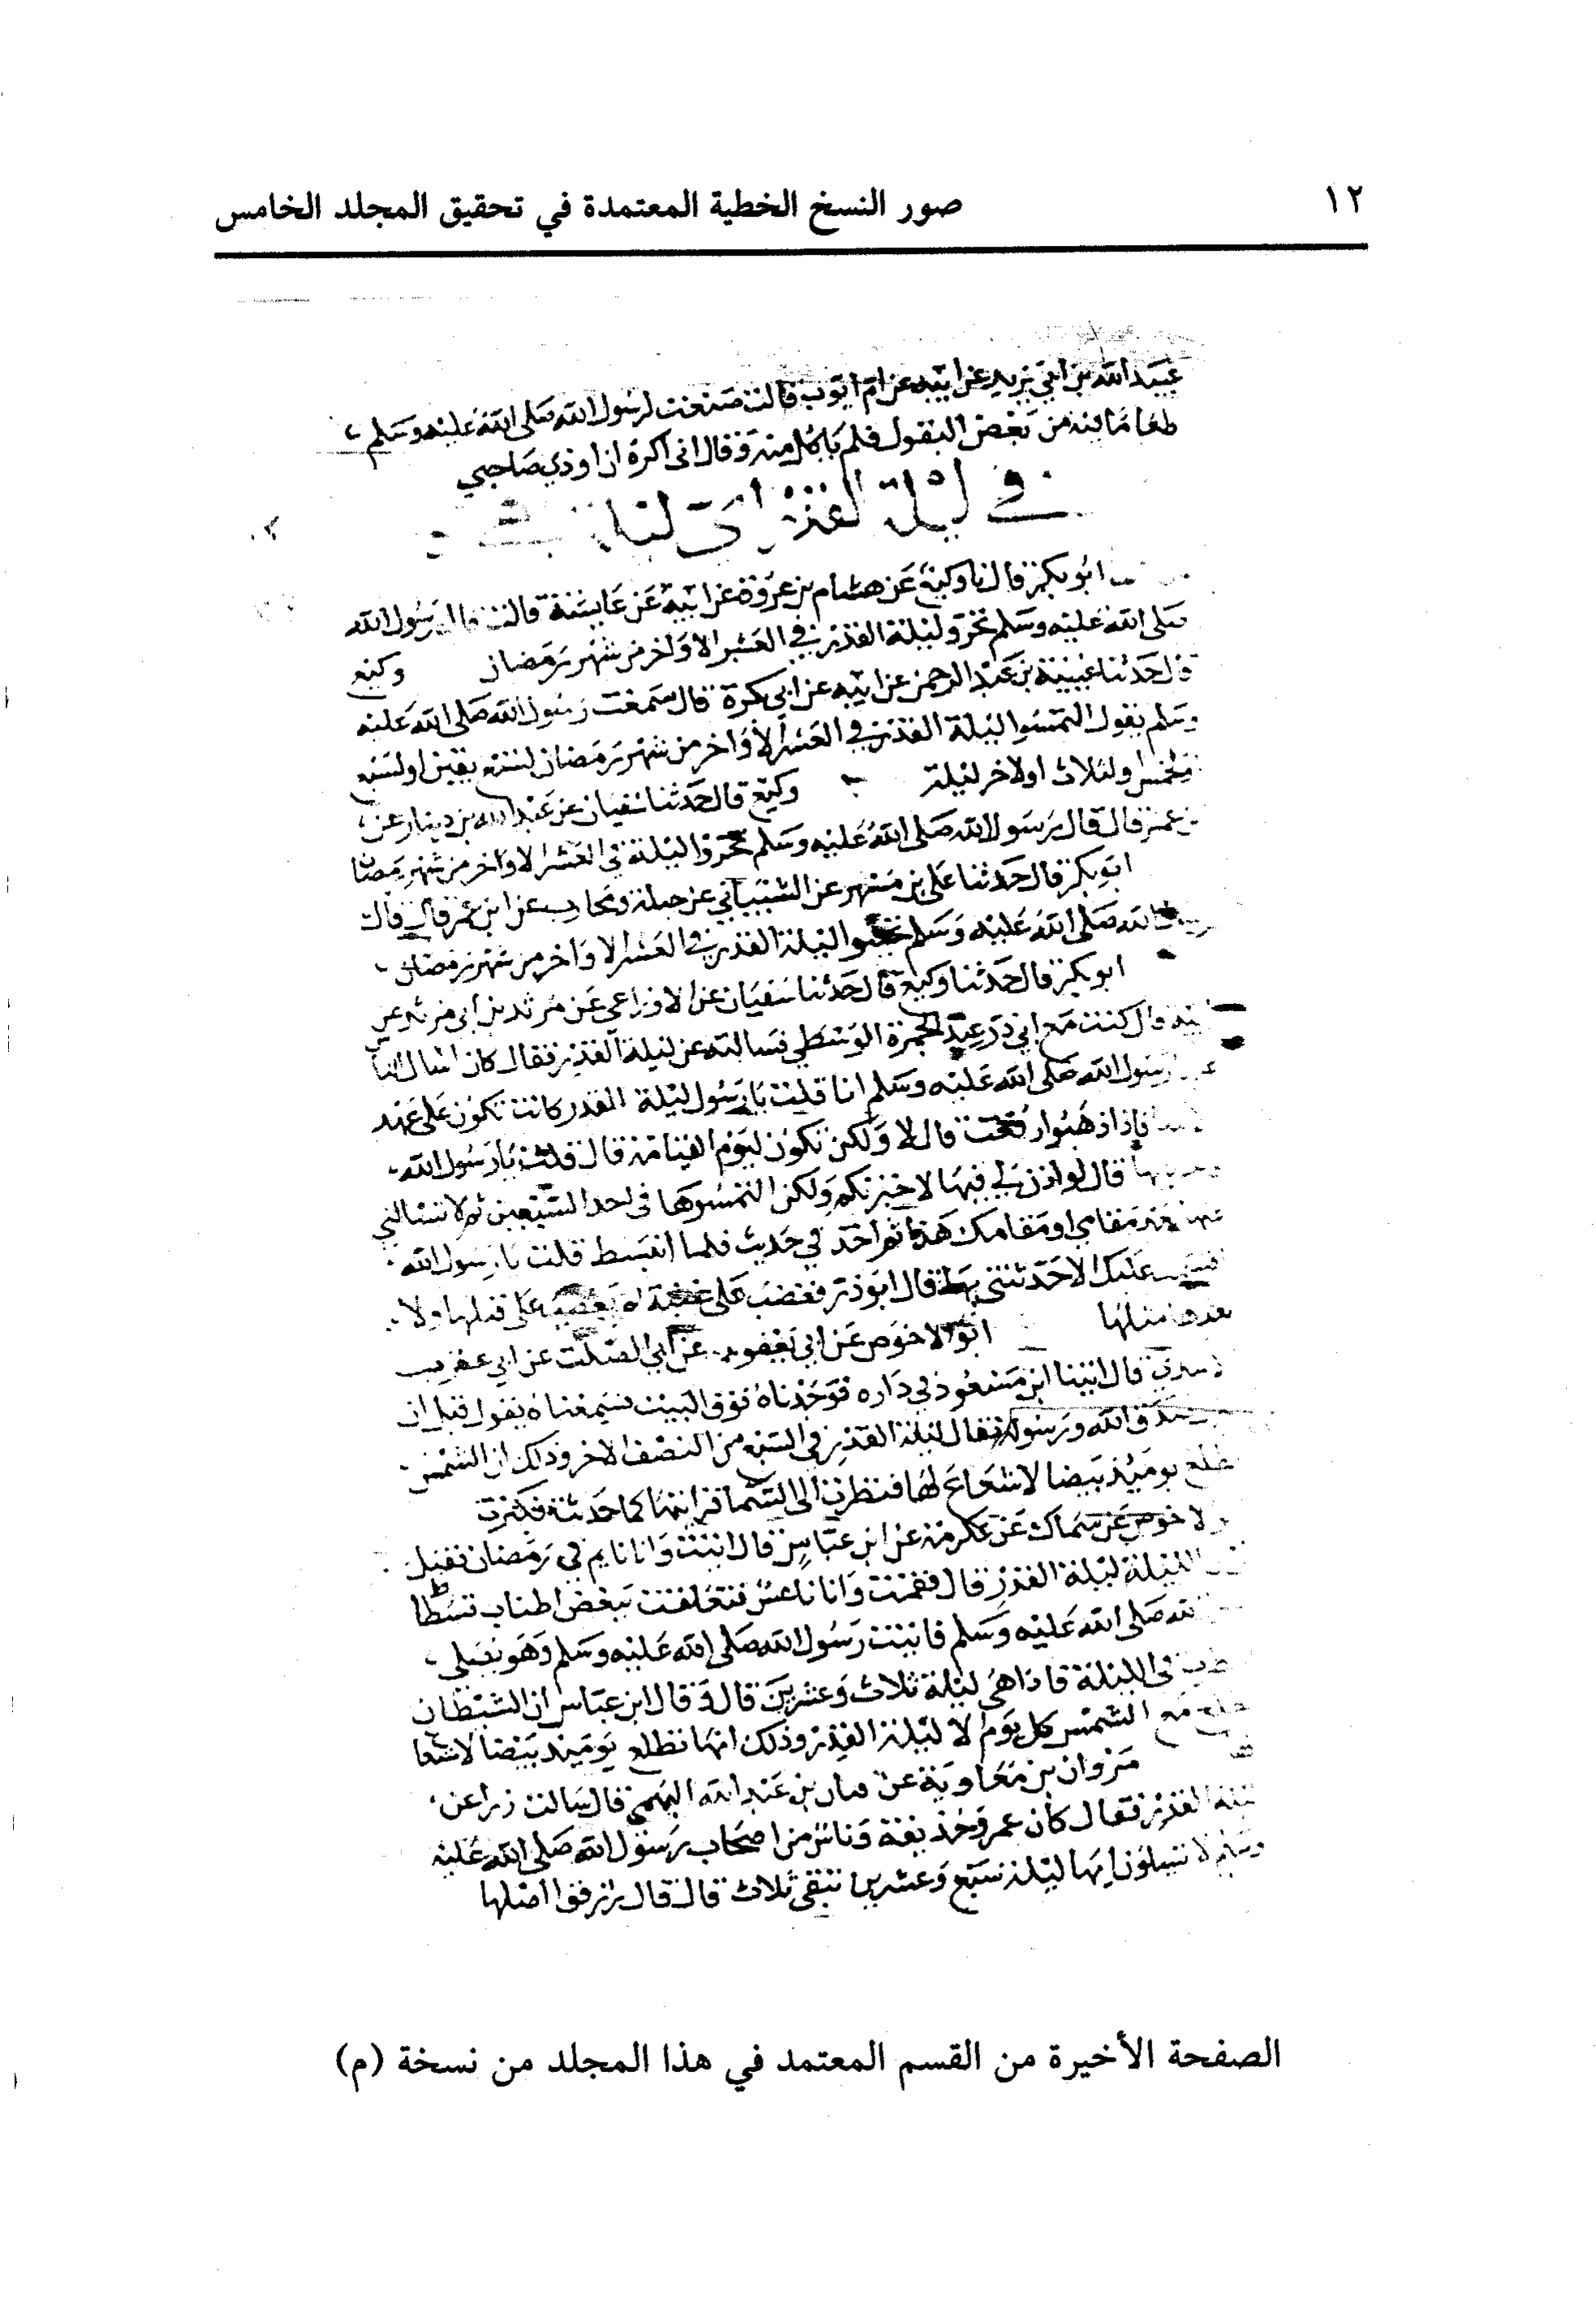 ١٢
صور النسخ الخطية المعتمدة في تحقيق المجلد الخامس
عبيد الله بن ابي يزيد عن ابيه عن ام ايوب قالت صنعت لرسول الله صلى الله عليه وسلم
طعاما فيه من بعض البقول فلم ياكل منه وقال انى اكره ان اوذي صاحبي
في ليلة القدر اى ليلة
ابو بكر قال نا وكيع عن هشام بن عروة عن ابيه عن عايشة قالت قال رسول الله
صلى الله عليه وسلم تحروا ليلة القدر في العشر الاواخر من شهر رمضان وكيع
قال حدثنا عيينة بن عبد الرحمن عن ابيه عن ابي بكرة قال سمعت رسول الله صلى الله عليه
وسلم يقول التمسوا ليلة القدر في العشر الاواخر من شهر رمضان لتسع بقين او لسبع
او لخمس او لثلاث او لاخر ليلة وكيع قال حدثنا سفيان عن عبد الله بن دينار عن
بن عمر قال قال رسول الله صلى الله عليه وسلم تحروا ليلة في العشر الاواخر من شهر رمضان
ابو بكر قال حدثنا على بن مسهر عن الشيباني عن جبلة ومحارب عن ابن عمر قال قال
رسول الله صلى الله عليه وسلم تحينوا ليلة القدر في العشر الاواخر من شهر رمضان
ابو بكر قال حدثنا وكيع قال حدثنا سفيان عن الاوزاعي عن مرثد بن ابي مرثد عن
ابيه قال كنت مع ابي ذر عند الجمرة الوسطي فسالته عن ليلة القدر فقال كان اسال الناس
عنها رسول الله صلى الله عليه وسلم انا قلت يا رسول ليلة القدر كانت تكون على عهد
فاذا ذهبوا رفعت قال لا ولكن تكون ليوم القيامة قال قلت يا رسول الله
قال لو اذن لي فيها لاخبرتكم ولكن التمسوها في احد السبعين ثم لا تسالني
عنها بعد مقامي او مقامك هذا ثم اخذ في حديث فلما انبسط قلت يا رسول الله
عليك الا حدثتني بها قال ابو ذر فغضب على غضبة لم يغضب على قبلها ولا
بعدها مثلها ابو الاحوص عن ابي يعفور عن ابي الصلت عن ابي عقرب
الاسدي قال اتينا ابن مسعود في داره فوجدناه فوق البيت فسمعناه يقول قبل ان
صدق الله ورسوله فقال ليلة القدر في السبع من النصف الاخر وذلك ان الشمس
تطلع يوميذ بيضا لا شعاع لها فنظرت الى السما فرايتها كما حدثت فكبرت
الاحوص عن سماك عن عكرمة عن ابن عباس قال اتيت وانا نايم في رمضان فقيل
الليلة ليلة القدر قال فقمت وانا ناعس فتعلقت ببعض اطناب فسطاط
الله صلى الله عليه وسلم فاتيت رسول الله صلى الله عليه وسلم وهو يصلي
في الليلة فاذا هى ليلة ثلاث وعشرين قال وقال ابن عباس ان الشيطان
يطلع مع الشمس كل يوم الا ليلة القدر وذلك انها تطلع يوميذ بيضا لا شعاع
مروان بن معاوية عن قنان بن عبد الله النهمي قال سالت زرا عن
ليلة القدر فقال كان عمر وحذيفة وناس من اصحاب رسول الله صلى الله عليه
وسلم لا يشكون انها ليلة سبع وعشرين تبقى ثلاث قال قال زر فواصلها
الصفحة الأخيرة من القسم المعتمد في هذا المجلد من نسخة (م)